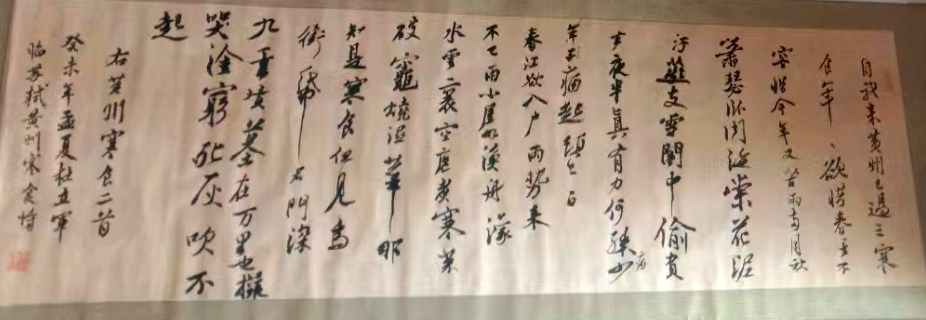 自我来黄州已過三寒
食年〻欲惜春春去不
容惜今年又苦雨两月秋
蕭瑟卧闻海棠花泥
汙燕支雪闇中偷負
去夜半真有力何殊少
年子病起頭已白
春江欲入户雨势来
不已雨小屋如漁舟濛
水雲裏空庖煮寒菜
破竈燒湿葦那
知是寒食但見烏
銜帋君門深
九重墳墓在万里也擬
哭塗窮死灰吹不
起
右黄州寒食二首
癸未年孟夏杜立軍
临苏轼黄州寒食诗